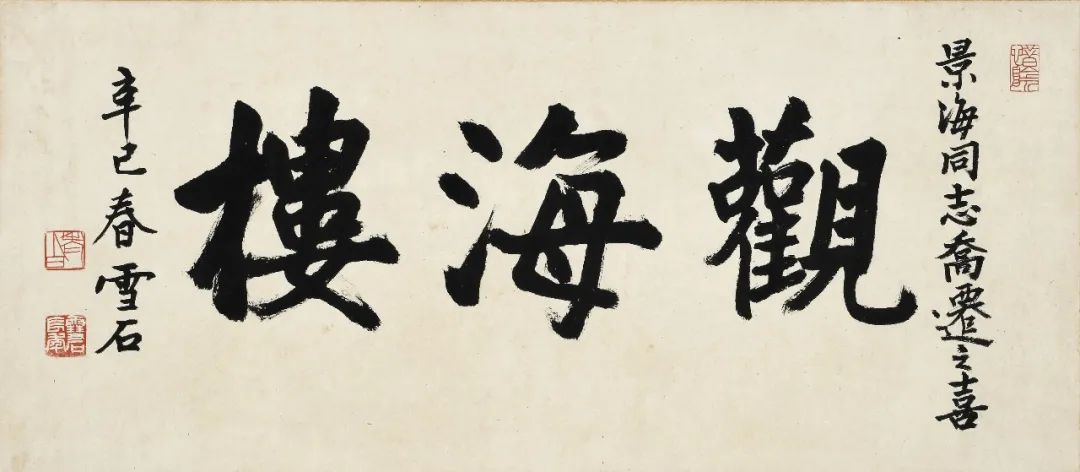 景海同志喬遷之喜
觀海樓
辛巳春雪石